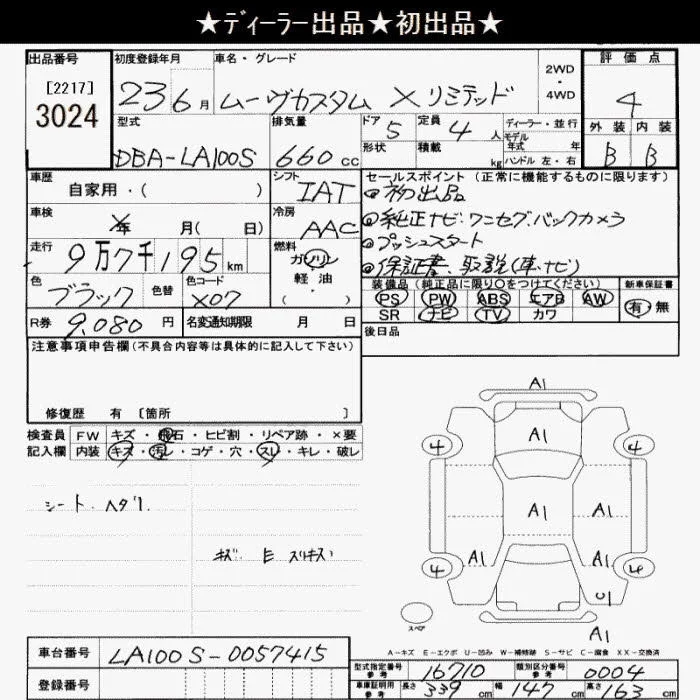 ★ディーラー出品★初出品★
出品番号 初度登録年月 車名・グレード 2WD・4WD 評価点
[2217]
3024 23 6月 ムーヴカスタム X リミテッド 4
型式 排気量 ドア 5 定員 4人 ディーラー・並行 外装 内装
モデル年式 年
DBA-LA100S 660cc 形状 積載 kg ハンドル 左・右 B B
車歴 シフト セールスポイント (正常に機能するものに限ります)
自家用・( ) IAT ●初出品
車検 冷房 ●純正ナビ.ワンセグ.バックカメラ
年 月( 日) AAC ●プッシュスタート
走行 燃料 ●保証書.取説(車.ナビ)
9万7千195km ガソリン
軽油
・( )
色 色替 色コード 装備品 (純正品に限り○をつけてください) 新車保証書
ブラック X07 PS PW ABS エアB AW 有・無
SR ナビ TV カワ
R券 9,080円 名変通知期限 月 日 後日品
注意事項申告欄(不具合内容等は具体的に記入して下さい)
修復歴 有 〔箇所 〕
検査員 FW キズ・飛石・ヒビ割・リペア跡・×要
記入欄 内装 キズ・汚レ・コゲ・穴・スレ・キレ・破レ
シート.ヘタリ
キズ E スリキズ
A1
A1
4 4
A1 A1
A1 A1
4 4
U1
スペア
A1
A-キズ E-エクボ U-凹み W-補修跡 S-サビ C-腐食 XX-交換済
車台番号 LA100S-0057415
登録番号
型式指定番号参考 16710 類別区分番号参考 0004
車庫証明用参考 長さ 339cm 幅 147cm 高さ 163cm